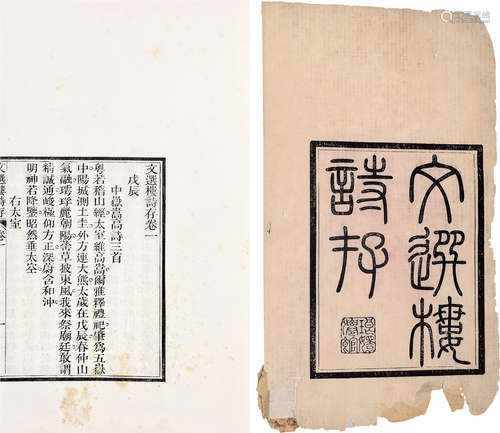 文選樓詩存卷一
戊辰
中嶽嵩高詩三首
粵若稽山經太室維高嵩爾雅釋禮祀肇為五嶽
中陽城測土圭外方連大熊太歲在戊辰春仲山
氣融璚琈麗朝陽䔄草披東風我來祭廟廷敢謂
精誠通峻極仰方正深蔚含和沖
明神若降鑒昭然垂太空
右太室
文選樓詩存 卷一
文選樓
詩存